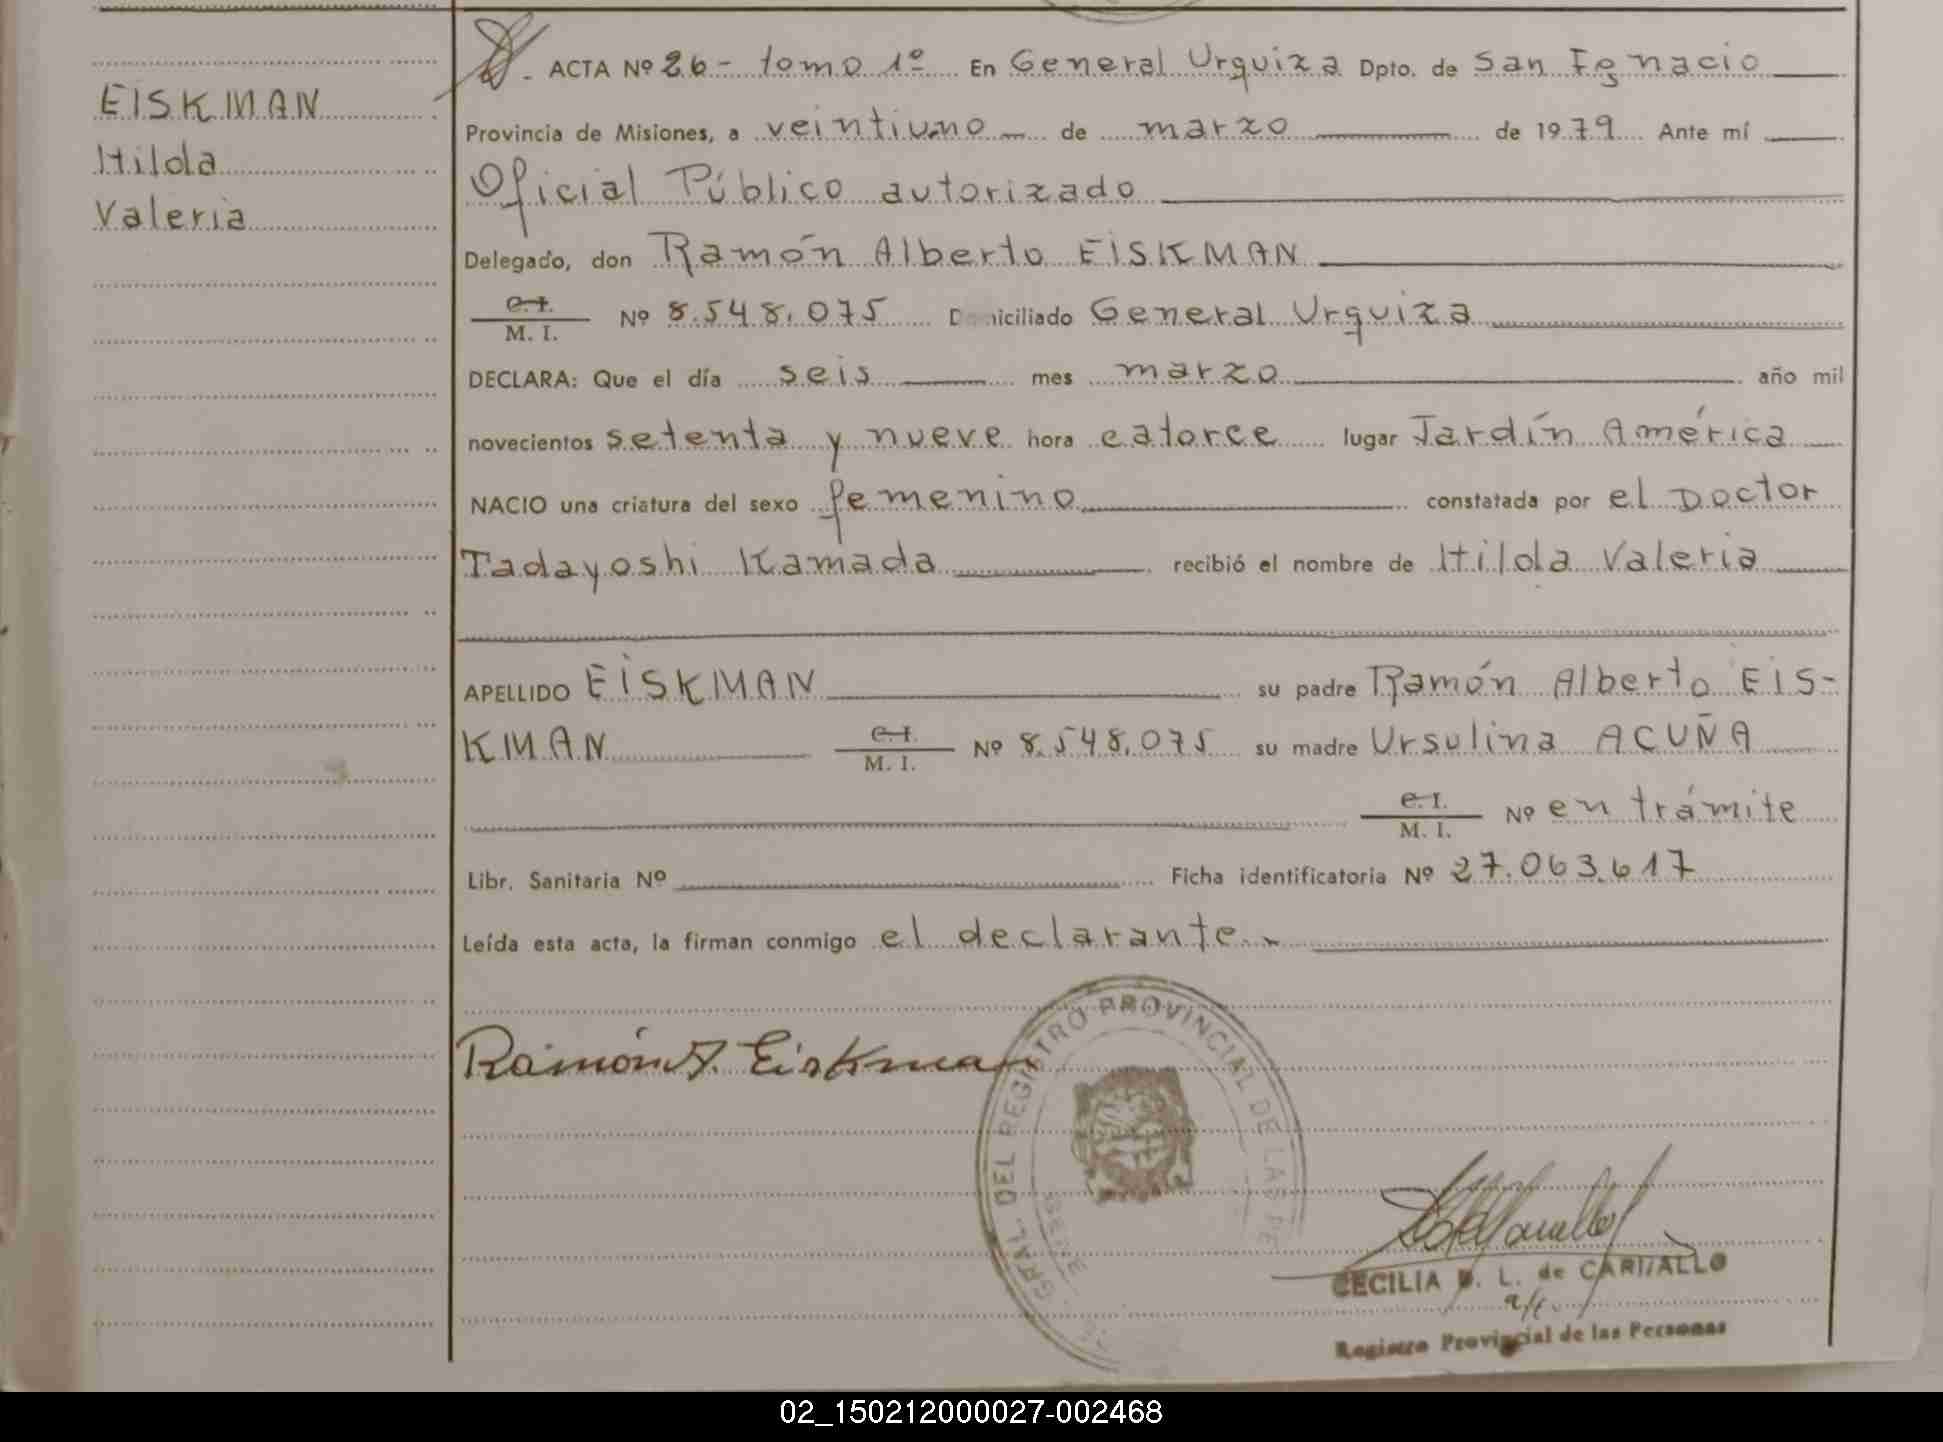 EISKMAN
Hilda
Valeria
ACTA Nº 26 - tomo 1º En General Urquiza Dpto. de San Ignacio
Provincia de Misiones, a veintiuno de marzo de 1979 Ante mí
Oficial Público autorizado
Delegado, don Ramón Alberto EISKMAN
C. I.
M. I. Nº 8.548.075 Domiciliado General Urquiza
DECLARA: Que el día seis mes marzo año mil
novecientos setenta y nueve hora catorce lugar Jardín América
NACIO una criatura del sexo femenino constatada por el Doctor
Tadayoshi Kamada recibió el nombre de Hilda Valeria
APELLIDO EISKMAN su padre Ramón Alberto EIS-
KMAN C. I. M. I. Nº 8.548.075 su madre Ursulina ACUÑA
C. I. M. I. Nº en trámite
Libr. Sanitaria Nº Ficha identificatoria Nº 27.063.617
Leída esta acta, la firman conmigo el declarante.
Ramón A. Eiskman
GRAL. DEL REGISTRO PROVINCIAL DE LAS PE
CECILIA L. de CARVALLO
Registro Provincial de las Personas
02_150212000027-002468